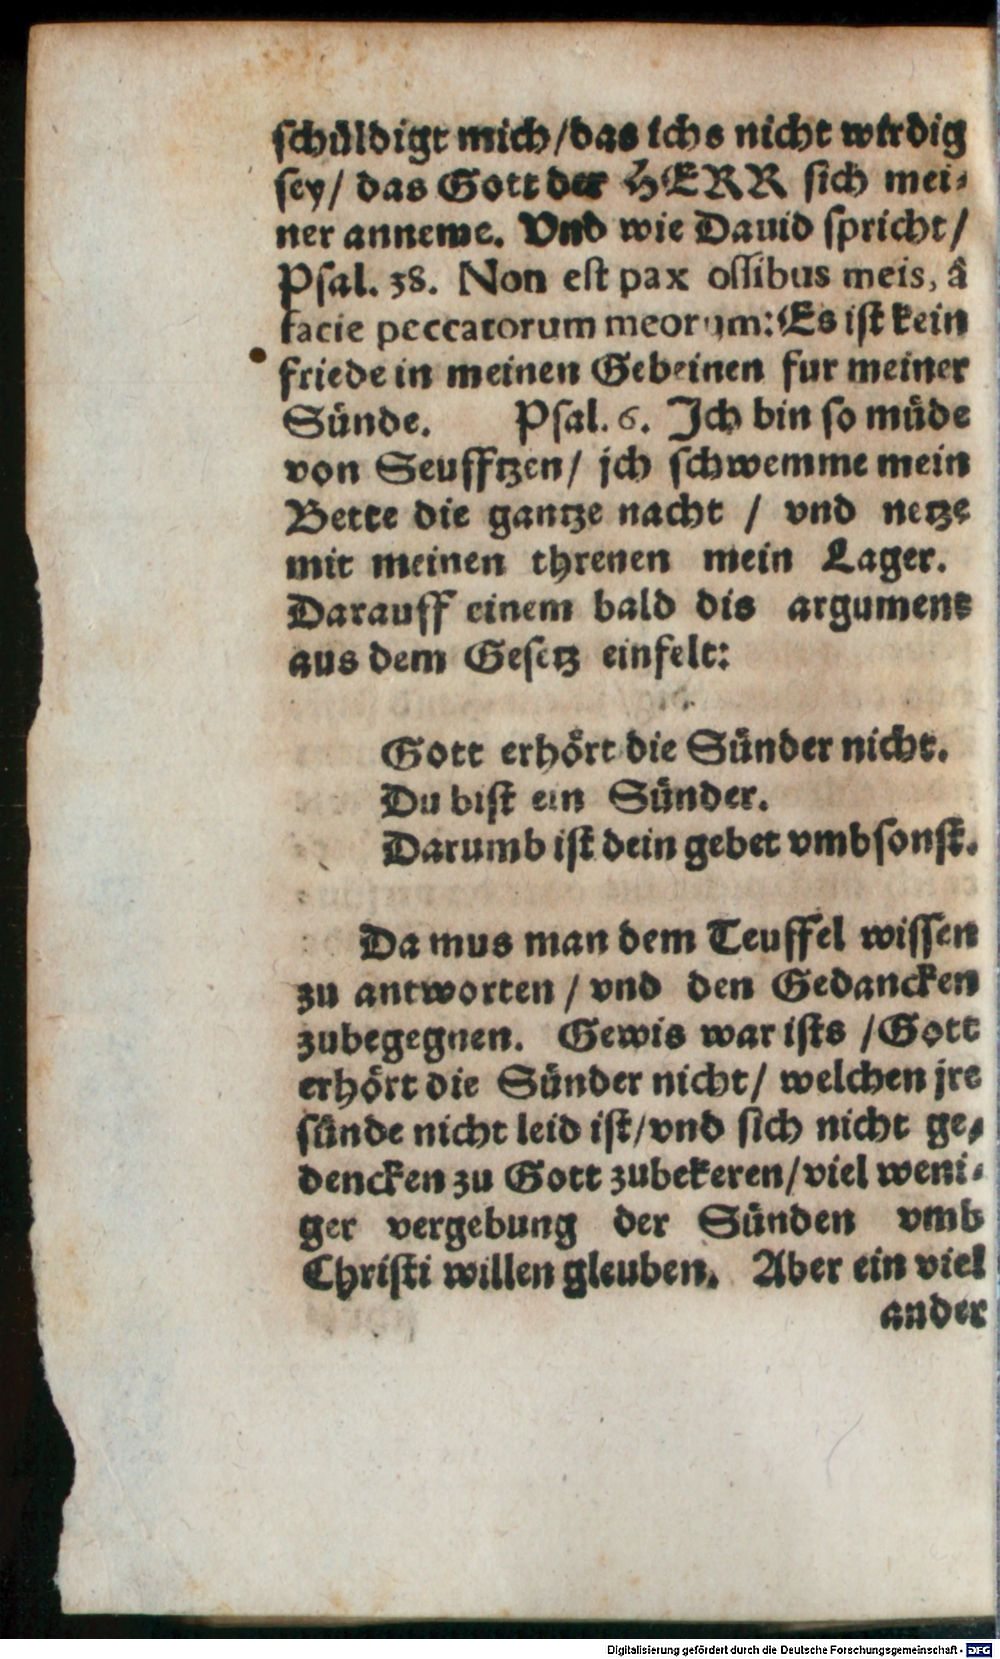 schüldigt mich/das ichs nicht wirdig
sey/ das Gott der HERR sich mei-
ner anneme. Vnd wie Dauid spricht/
Psal. 38. Non est pax ossibus meis, â
facie peccatorum meorum: Es ist kein
friede in meinen Gebeinen fur meiner
Sünde. Psal. 6. Ich bin so müde
von Seufftzen/ jch schwemme mein
Bette die gantze nacht / vnd netze
mit meinen threnen mein Lager.
Darauff einem bald dis argument
aus dem Gesetz einfelt:
Gott erhört die Sünder nicht.
Du bist ein Sünder.
Darumb ist dein gebet vmbsonst.
Da mus man dem Teuffel wissen
zu antworten / vnd den Gedancken
zubegegnen. Gewis war ists /Gott
erhört die Sünder nicht/ welchen jre
sünde nicht leid ist/vnd sich nicht ge-
dencken zu Gott zubekeren/viel weni-
ger vergebung der Sünden vmb
Christi willen gleuben. Aber ein viel
ander
Digitalisierung gefördert durch die Deutsche Forschungsgemeinschaft - DFG